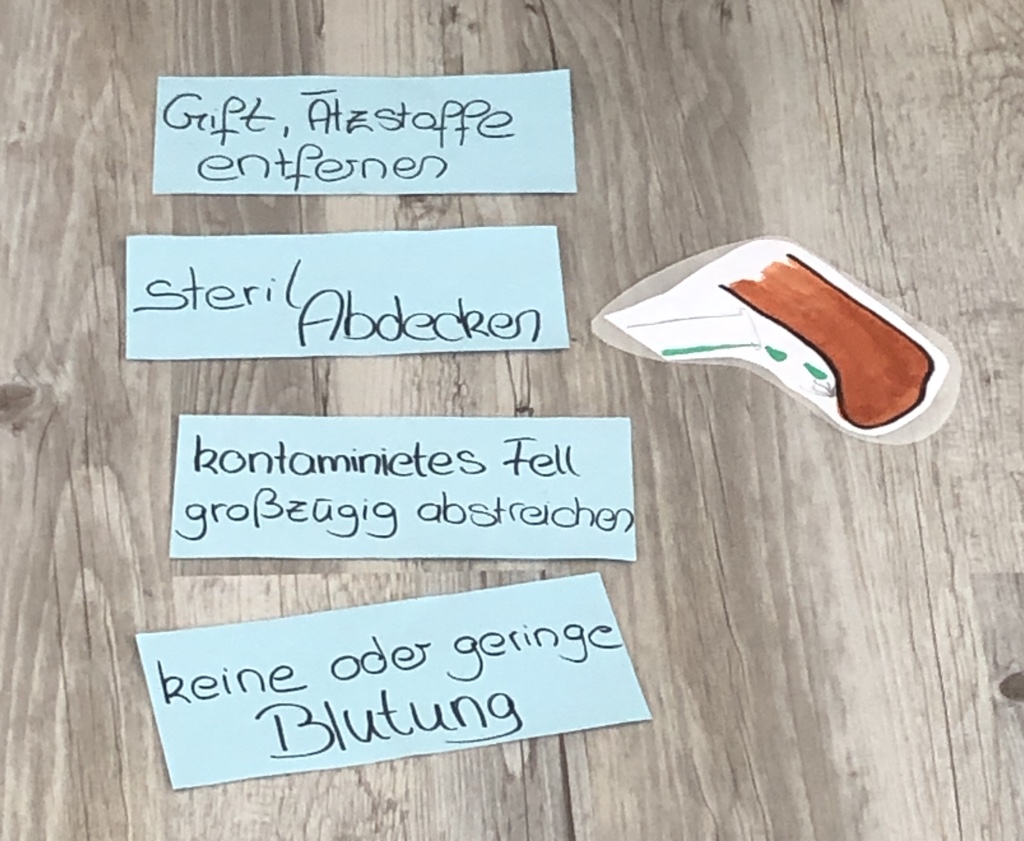 Gift, Ätzstoffe
entfernen
steril Abdecken
kontaminietes Fell
großzügig abstreichen
keine oder geringe
Blutung